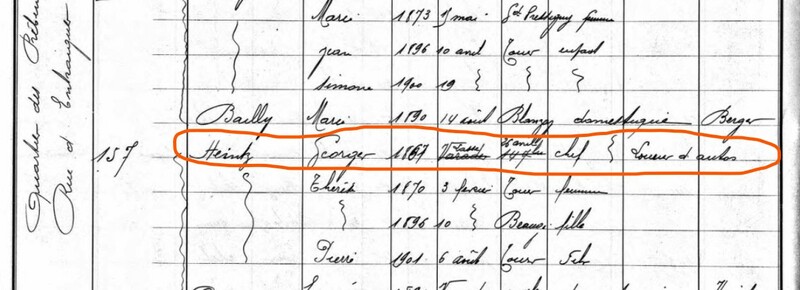 Quartier des Prében
Rue d'Entraigues
Marie 1873 9 mai Gd Pressigny femme
Jean 1896 10 avril Tours enfant
Simone 1900 19 " "
Bailly Marie 1890 14 août Blanzay domestique Berger
157 Heintz Georges 1867 chef Loueur d'autos
Thérèse 1870 3 février Tours femme
1896 10 fille
Pierre 1901 6 août Tours fils